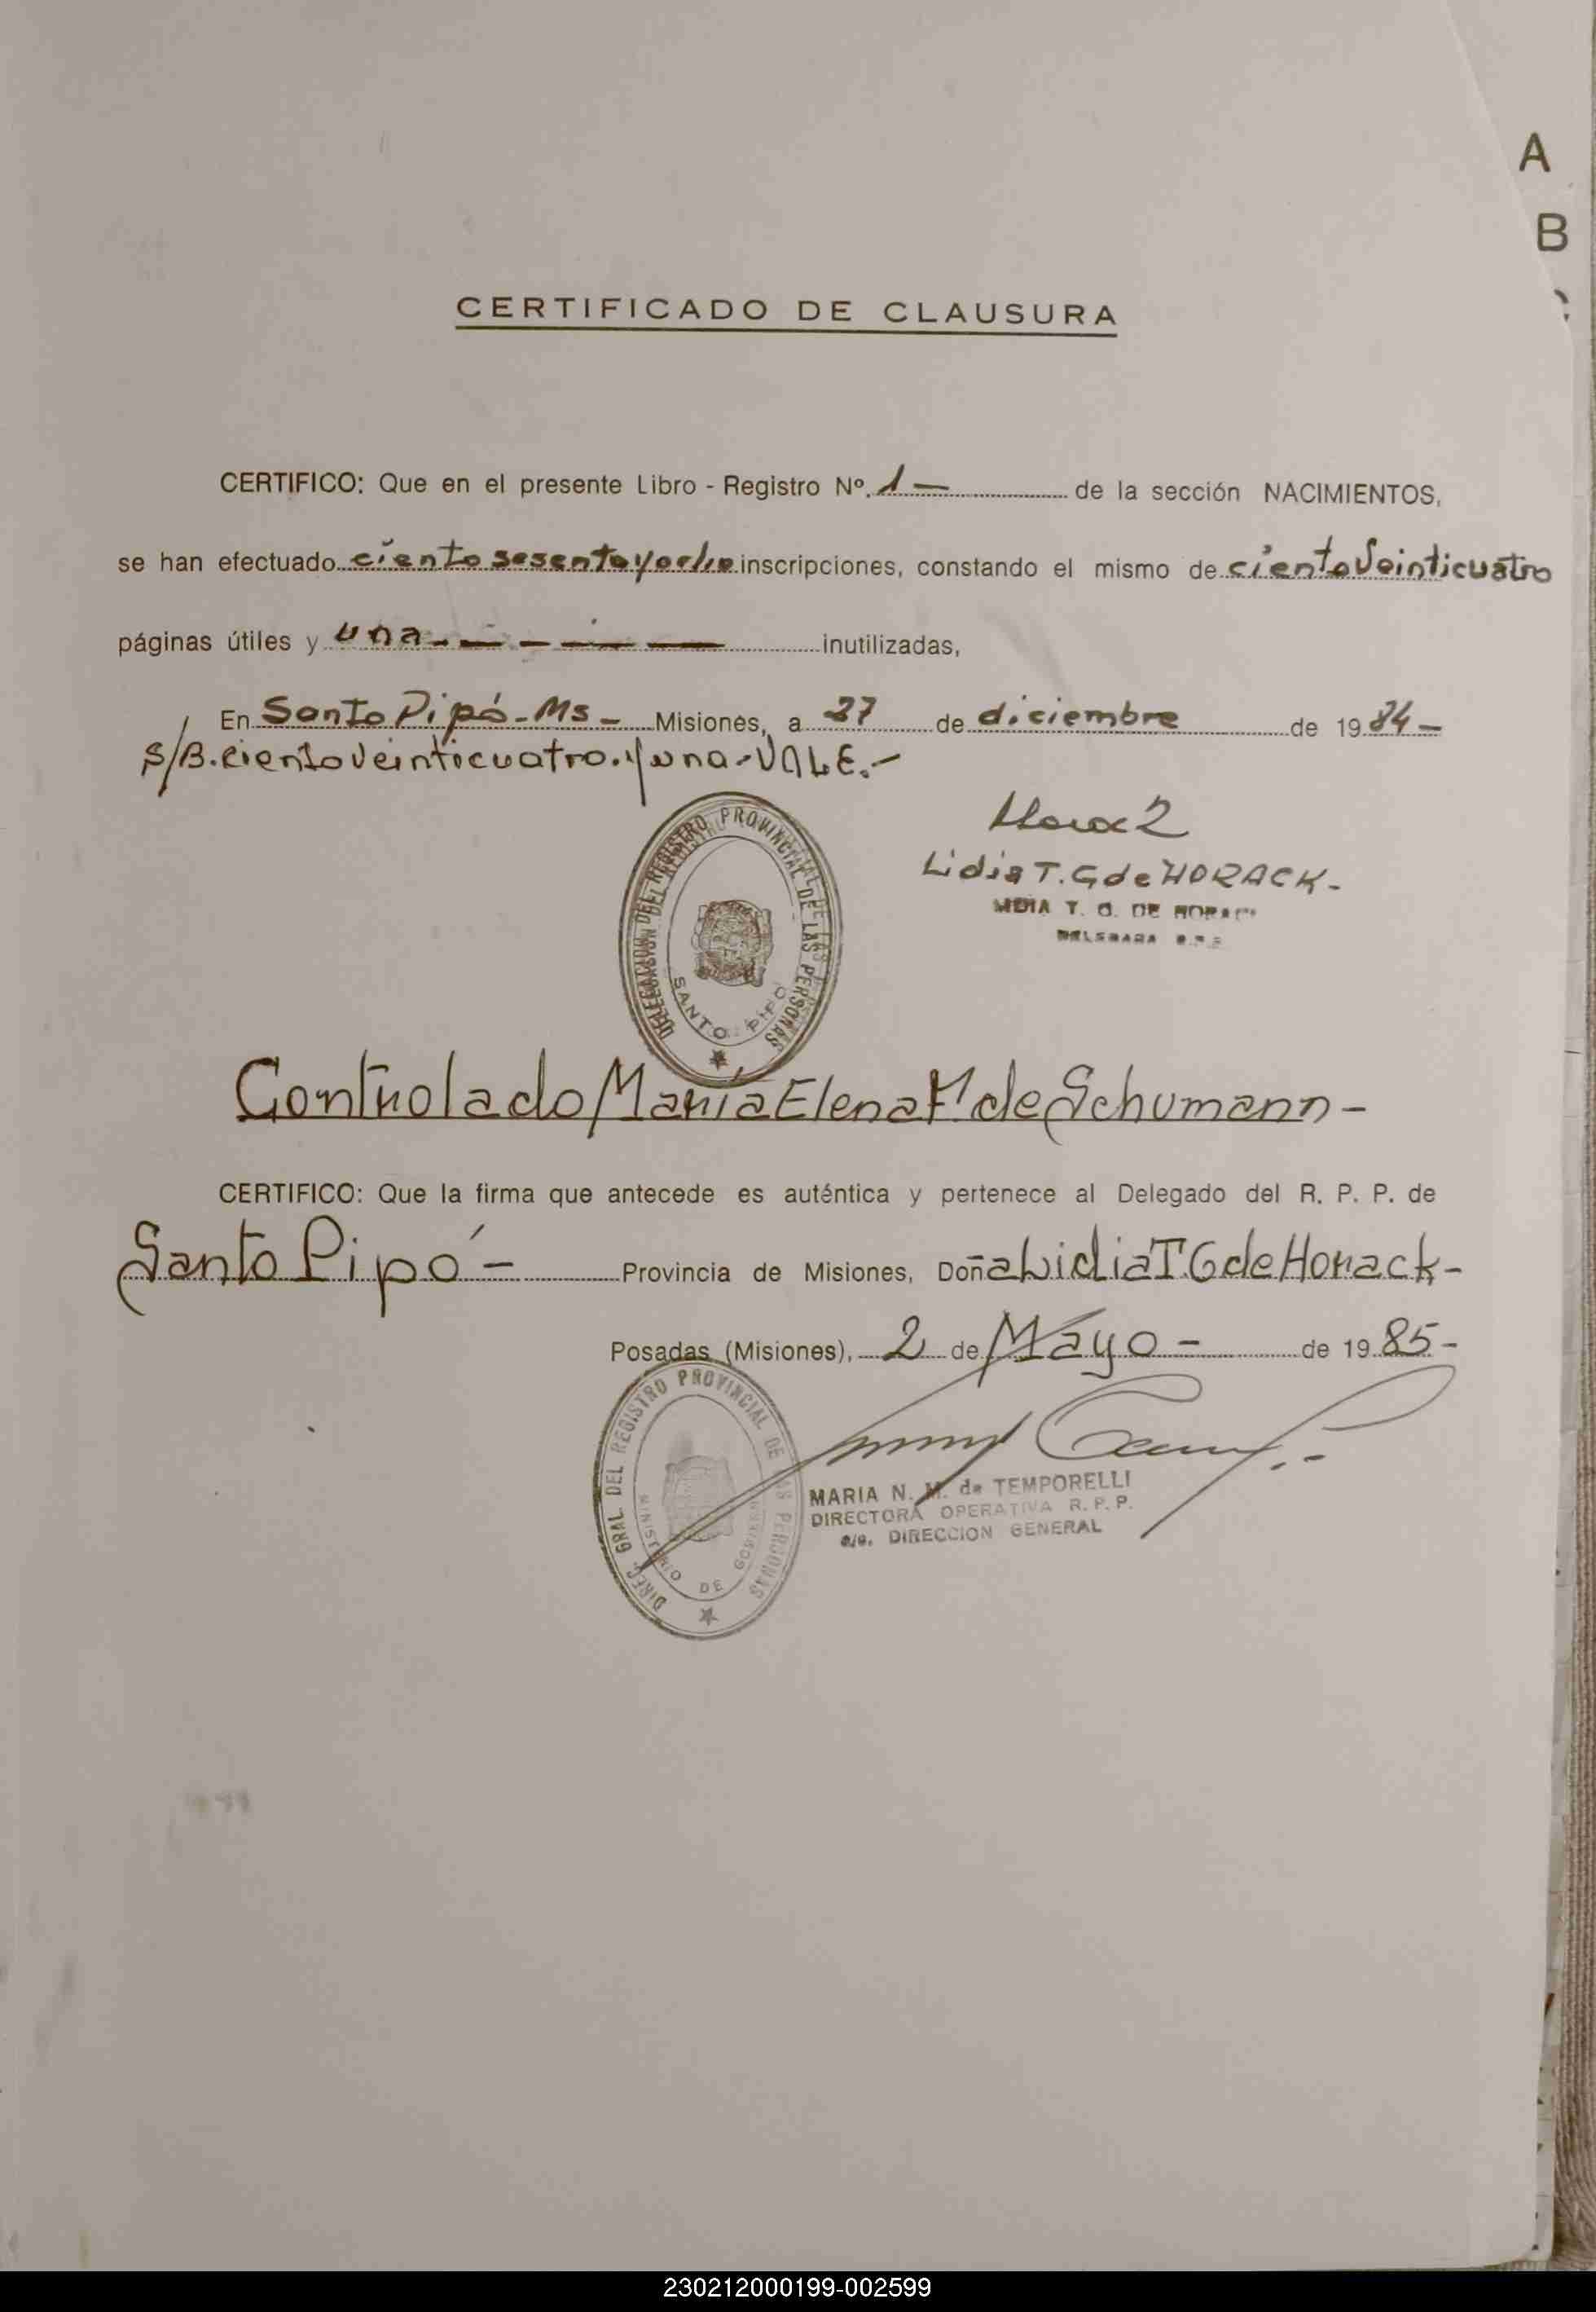 A
B
CERTIFICADO DE CLAUSURA
CERTIFICO: Que en el presente Libro - Registro Nº. 1 — de la sección NACIMIENTOS,
se han efectuado ciento sesenta y ocho inscripciones, constando el mismo de ciento veinticuatro
páginas útiles y una - — - — — inutilizadas,
En Santo Pipó - Ms - Misiones, a 27 de diciembre de 1984 -
S/B. ciento veinticuatro. y una - VALE. -
Lidia T. G de HORACK -
LIDIA T. G. DE HORACK
DELEGADA R.P.P.
DELEGACION DEL REGISTRO PROVINCIAL DE LAS PERSONAS
SANTO PIPO
Controlado María Elena M de Schumann -
CERTIFICO: Que la firma que antecede es auténtica y pertenece al Delegado del R. P. P. de
Santo Pipó - Provincia de Misiones, Doña Lidia T. G de Horack -
Posadas (Misiones), 2 de Mayo - de 1985 -
DIREC. GRAL. DEL REGISTRO PROVINCIAL DE LAS PERSONAS
MINISTERIO DE GOBIERNO
MARIA N. M. de TEMPORELLI
DIRECTORA OPERATIVA R. P. P.
a/c. DIRECCION GENERAL
230212000199-002599